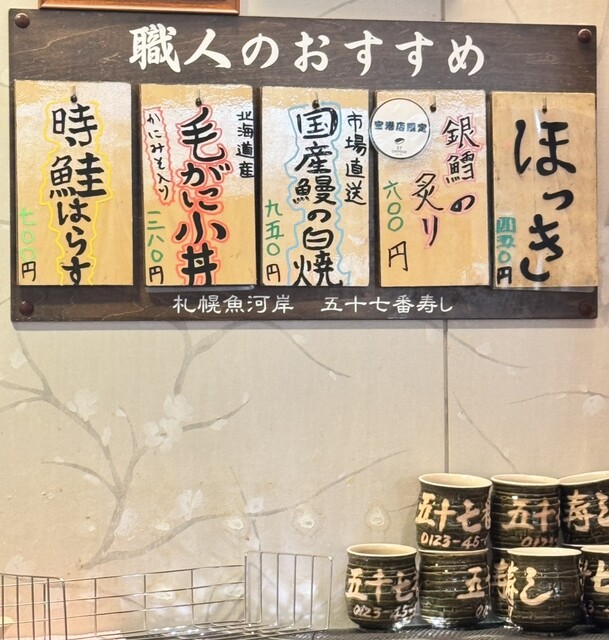 職人のおすすめ
ほっき
四五〇円
銀鱈の炙り
六〇〇円
空港店限定
市場直送
国産鰻の白焼
九五〇円
北海道産
毛がに小丼
かにみそ入り
三八〇円
時鮭はらす
七〇〇円
札幌魚河岸 五十七番寿し
五十七番
0123-45-
五十
012
寿し
五十七
0123-45
五
0123
寿し
七